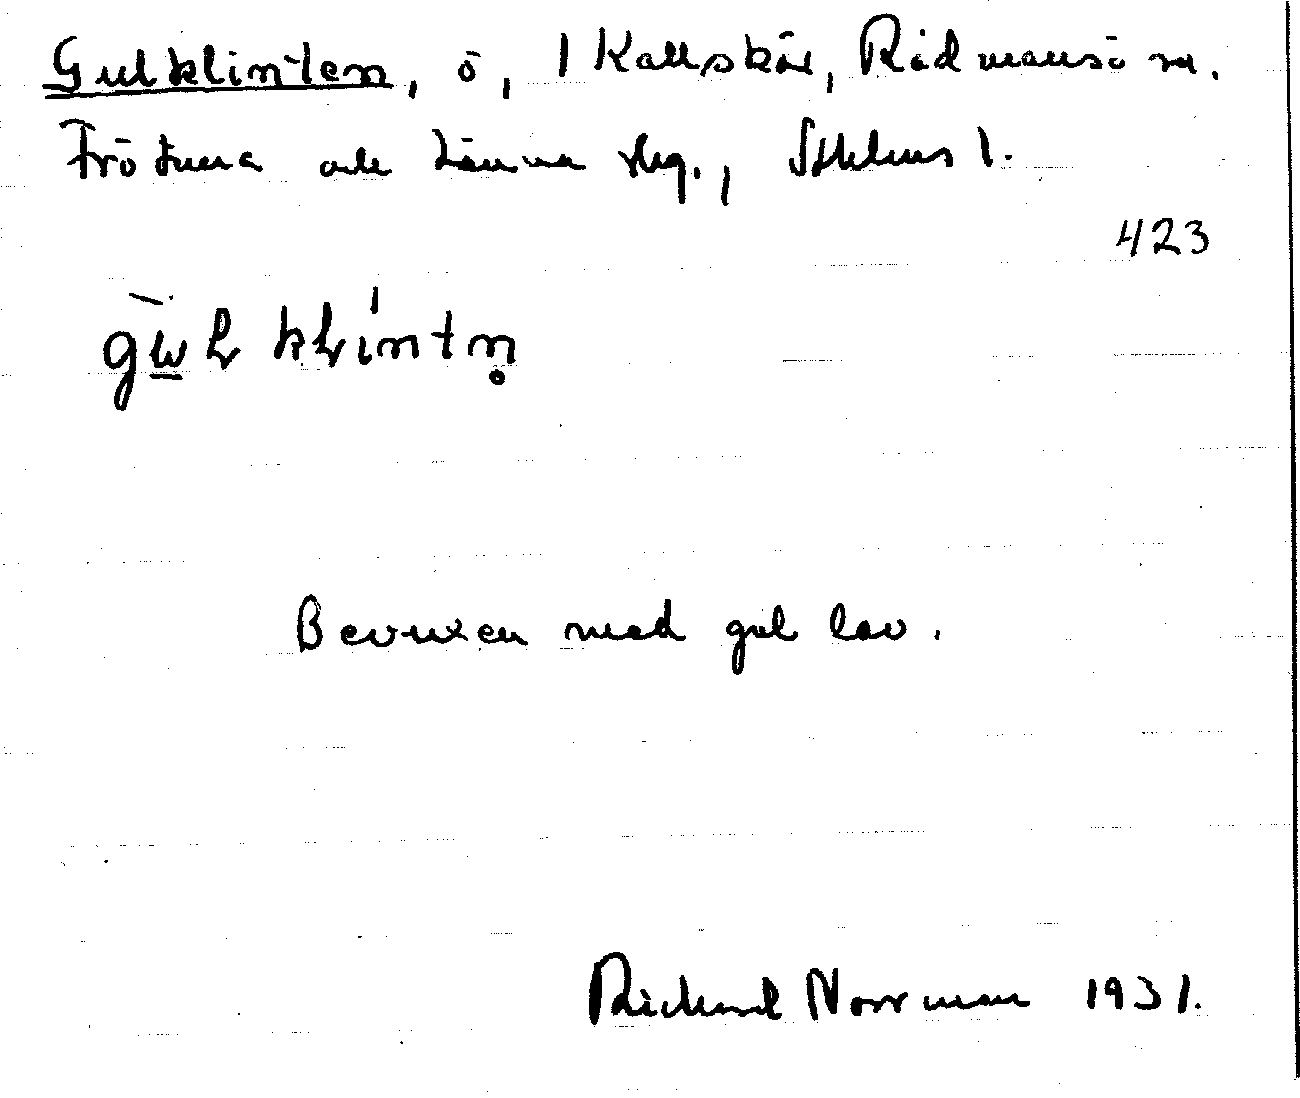 Gulklinten, ö, 1 Kallskär, Rådmansö sn.
Frötuna och Länna skg., Sthlms l.
423
gu̲l klintn̥
Bevuxen med gul lav.
Richard Norrman 1931.